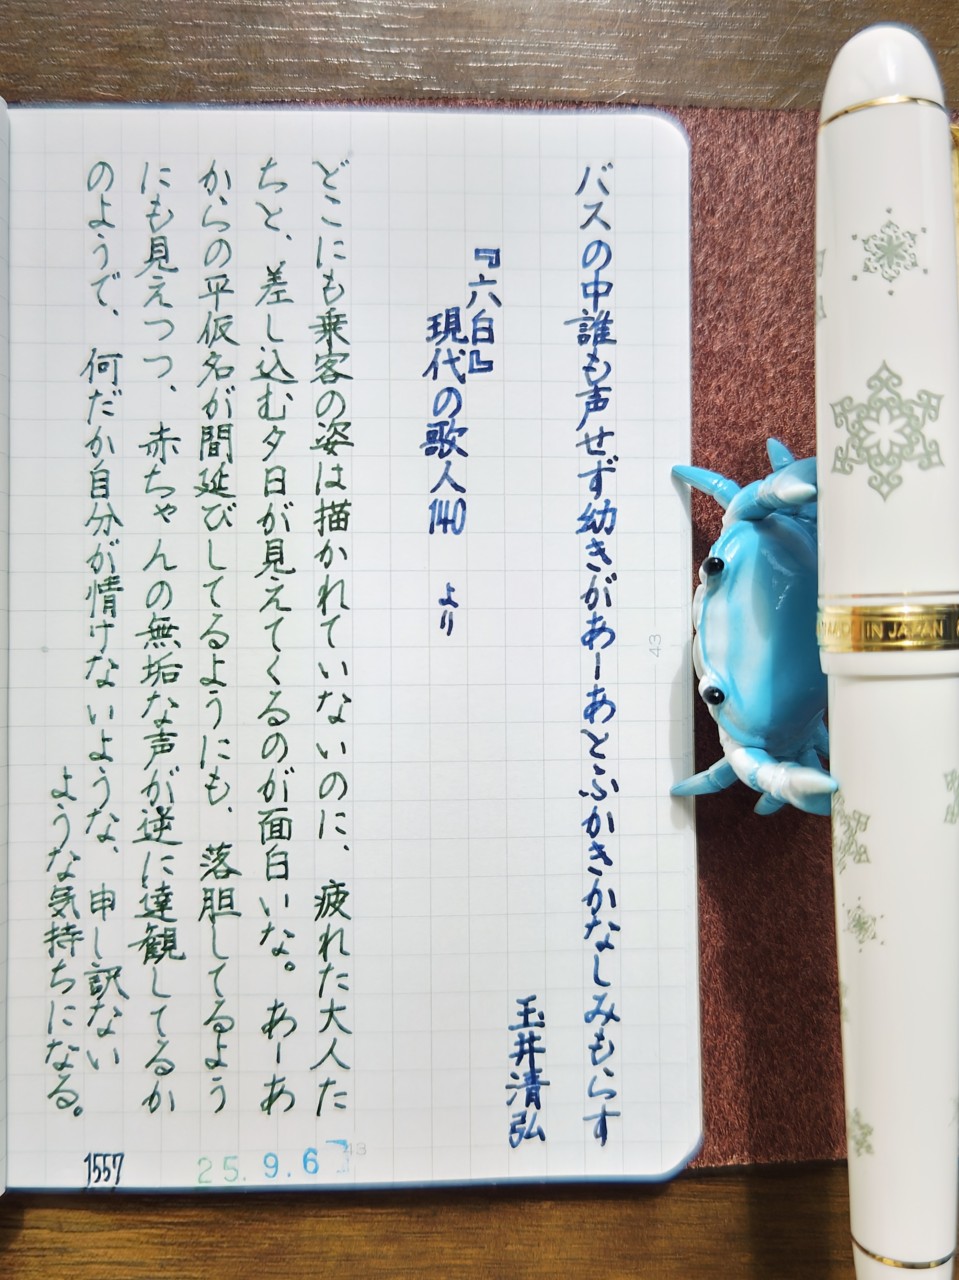 バスの中誰も声せず幼きがあーあとふかきかなしみもらす
玉井清弘
『六白』
現代の歌人140 より
どこにも乗客の姿は描かれていないのに、疲れた大人た
ちと、差し込む夕日が見えてくるのが面白いな。あーあ
からの平仮名が間延びしてるようにも、落胆してるよう
にも見えつつ、赤ちゃんの無垢な声が逆に達観してるか
のようで、何だか自分が情けないような、申し訳ない
ような気持ちになる。
1557
25.9.6
43
43
IN JAPAN